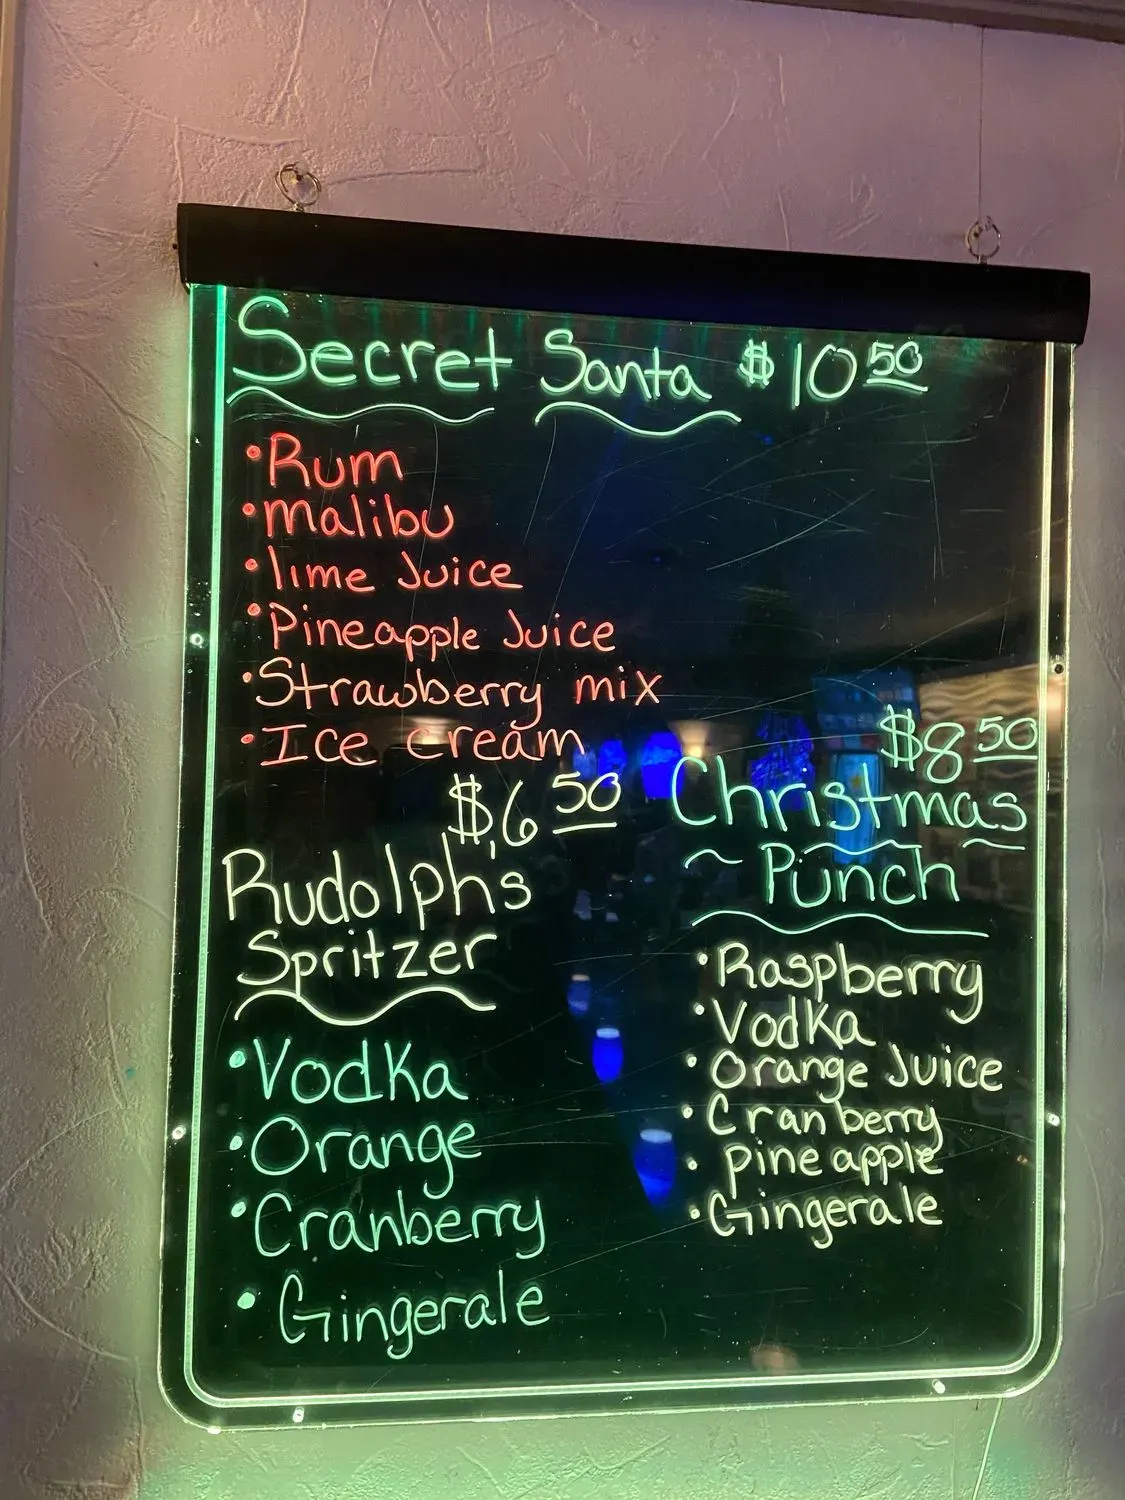 Secret Santa $10 50
• Rum
• malibu
• lime Juice
• Pineapple Juice
• Strawberry mix
• Ice cream
$6 50
Rudolph's
Spritzer
• Vodka
• Orange
• Cranberry
• Gingerale
$8 50
Christmas
~ Punch
• Raspberry
• Vodka
• Orange Juice
• Cranberry
• pineapple
• Gingerale